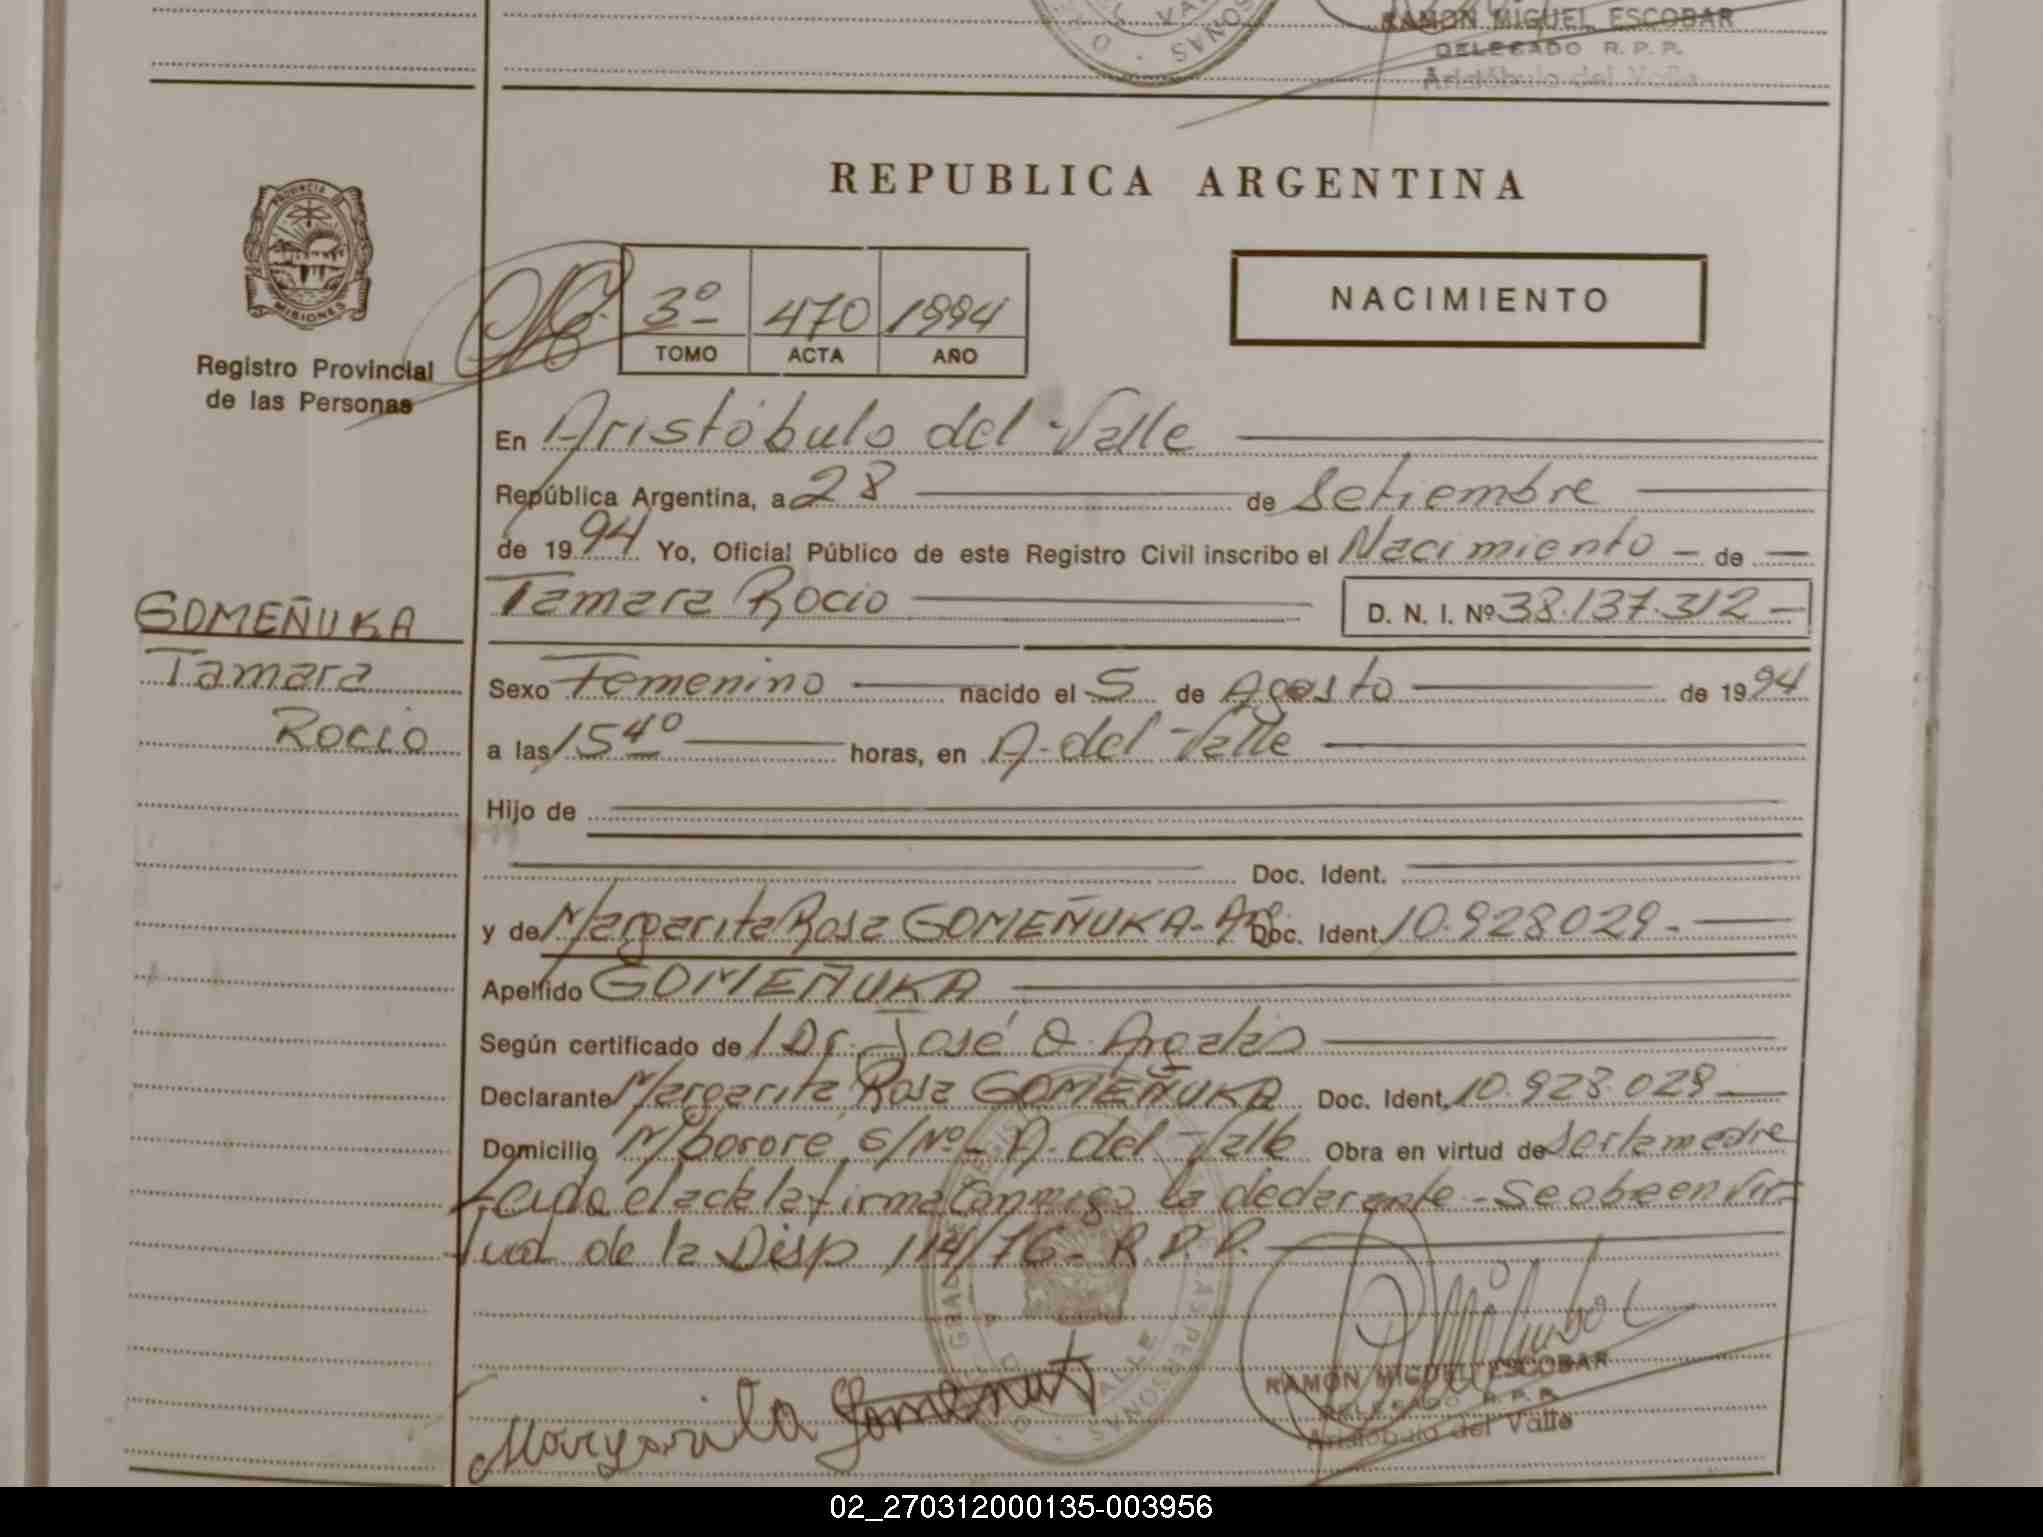 RAMON MIGUEL ESCOBAR
DELEGADO R. P. P.
Aristóbulo del Valle
REPUBLICA ARGENTINA
PROVINCIA DE
MISIONES
Registro Provincial
de las Personas
3º 470 1994
TOMO ACTA AÑO
NACIMIENTO
En Aristóbulo del Valle
República Argentina, a 28 de Setiembre
de 1994 Yo, Oficial Público de este Registro Civil inscribo el Nacimiento - de
Tamara Rocio D. N. I. Nº 38.137.312
GOMEÑUKA
Tamara
Rocio
Sexo Femenino nacido el 5 de Agosto de 1994
a las 15 40 horas, en A. del Valle
Hijo de
Doc. Ident.
y de Margarita Rosa GOMEÑUKA - Arg. Doc. Ident. 10.928.029.-
Apellido GOMEÑUKA
Según certificado de / Dr. José O.
Declarante Margarita Rosa GOMEÑUKA Doc. Ident. 10.928.029
Domicilio Mborore S/Nº - A. del Valle Obra en virtud de ser la madre
Leida el acta la firma conmigo la declarante - Se obra en vir-
tud de la Disp 114/76 - R.P.P.
Margarita
RAMON MIGUEL ESCOBAR
DELEGADO R. P. P.
Aristóbulo del Valle
02_270312000135-003956